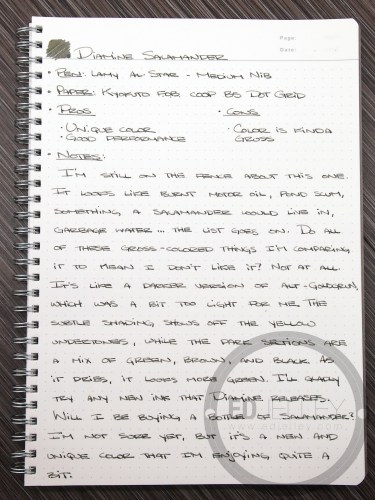 Page:
Date:
Diamine Salamander
• Pen: Lamy Al-Star - Medium Nib
• Paper: Kyokuto FOB COOP B5 Dot Grid
• Pros
• Cons
• Unique color
• Color is kinda
• Good performance
gross
• Notes:
I'm still on the fence about this one.
It looks like burnt motor oil, pond scum,
something a salamander would live in,
garbage water... the list goes on. Do all
of these gross-colored things I'm comparing
it to mean I don't like it? Not at all.
It's like a darker version of Alt-Goldgrun,
which was a bit too light for me. The
subtle shading shows off the yellow
undertones, while the dark sections are
a mix of green, brown, and black. As
it dries, it looks more green. I'll gladly
try any new ink that Diamine releases.
Will I be buying a bottle of Salamander?
I'm not sure yet, but it's a new and
unique color that I'm enjoying quite a
bit.
ED JELLEY
www.edjelley.com